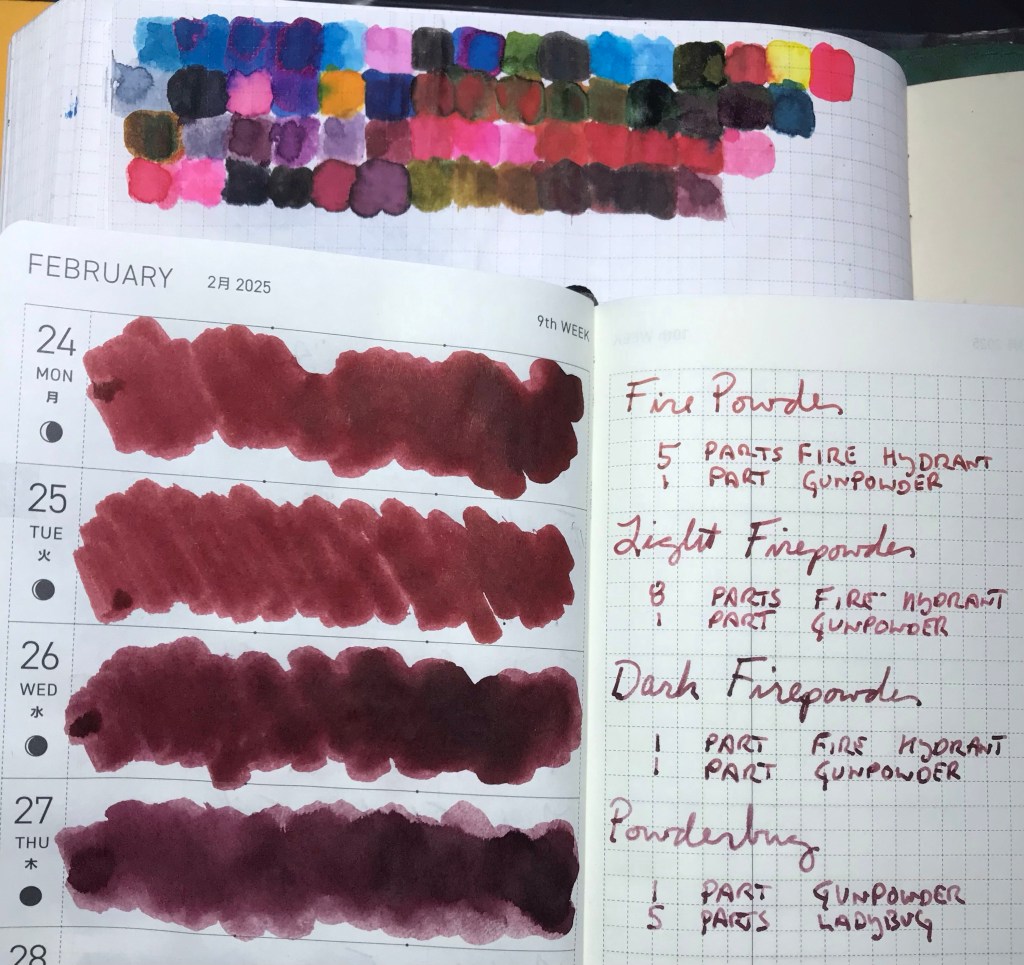 FEBRUARY 2月 2025
9th WEEK
24
MON
月
25
TUE
火
26
WED
水
27
THU
木
28
Fire Powder
5 PARTS FIRE HYDRANT
1 PART GUNPOWDER
Light Firepowder
8 PARTS FIRE HYDRANT
1 PART GUNPOWDER
Dark Firepowder
1 PART FIRE HYDRANT
1 PART GUNPOWDER
Powderbug
1 PART GUNPOWDER
5 PARTS LADYBUG